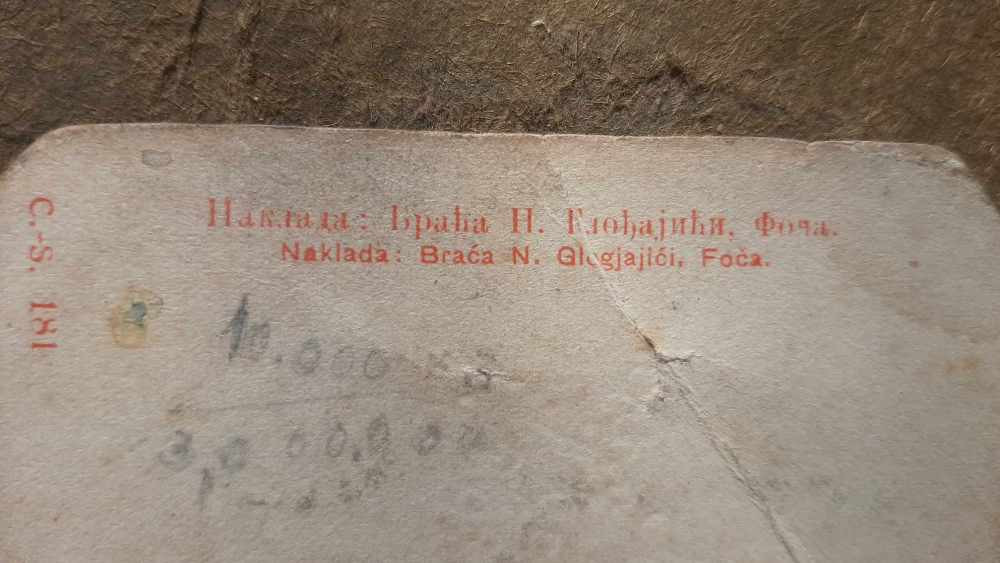 Наклада: Браћа Н. Глођајићи, Фоча.
Naklada: Braća N. Glogjajići, Foča.
C.-S. 181
10.000